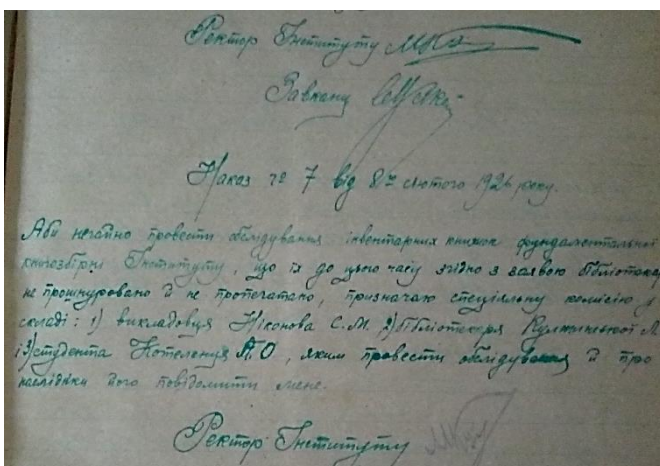 Ректор Інституту
Завканц
Наказ № 7 від 8го лютого 1926 року.
Аби негайно провести обслідування інвентарних книжок фундаментальної
книгозбірні Інституту, що їх до цього часу згідно з заявою бібліотекар
не прошнуровано й не пропечатано, призначаю спеціальну комісію у
складі: 1) викладовця Ніконова С.М. 2) бібліотекаря
і 3) студента П.О, яким провести обслідування й про
наслідки його повідомити мене.
Ректор Інституту